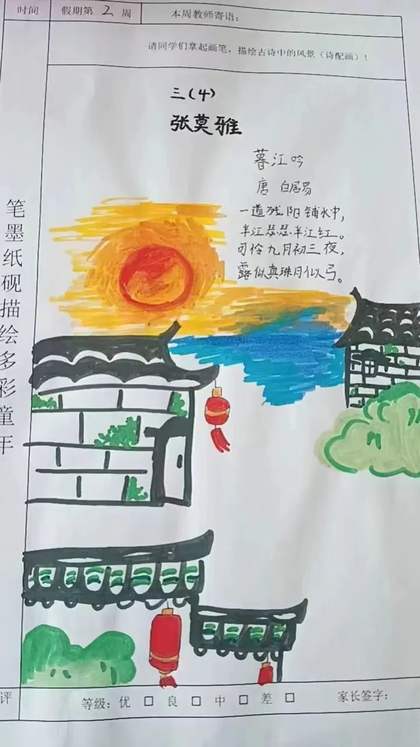 时间 假期第 2 周 本周教师寄语:
请同学们拿起画笔，描绘古诗中的风景（诗配画）！
三(4)
张莫雅
暮江吟
唐 白居易
一道残阳铺水中，
半江瑟瑟半江红。
可怜九月初三夜，
露似真珠月似弓。
笔墨纸砚描绘多彩童年
评 等级: 优 □ 良 □ 中 □ 差 □ 家长签字: